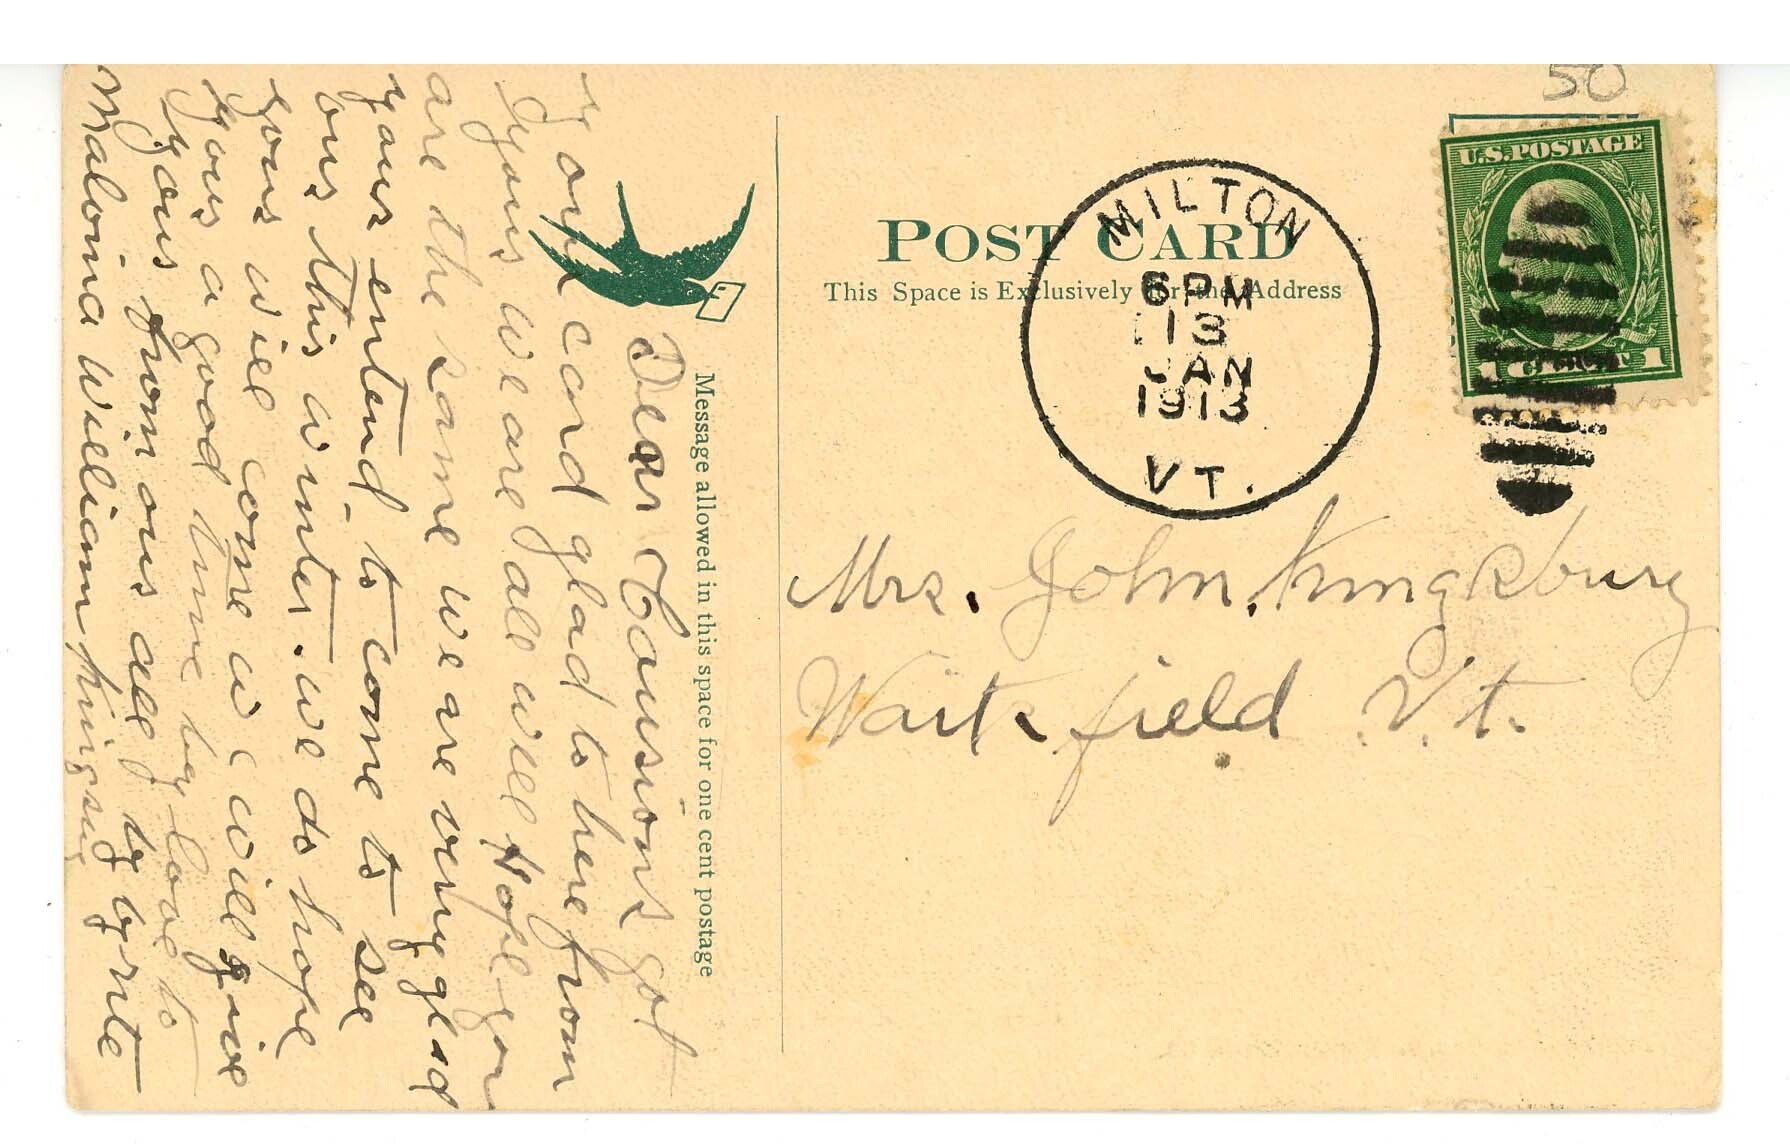 50
U.S. POSTAGE
1 CENT 1
MILTON
6 PM
13
JAN
1913
VT.
POST CARD
This Space is Exclusively for the Address
Mrs. John Kingsbury
Waitsfield Vt.
Message allowed in this space for one cent postage
Dear Cousions got
your card glad to here from
yous we are all well Hope you
are the same we are very glad
yous entend to come to see
ous this winter. we do hope
yous will come w will give
yous a good time by love to
yous from ous all by by rite
Malvina William Kingsbury